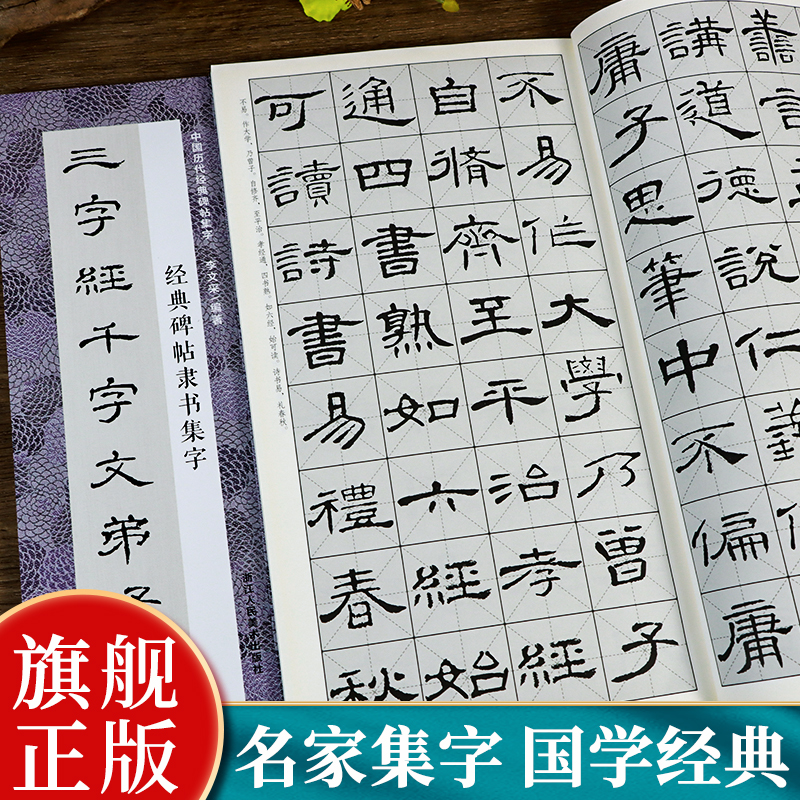 中国历代经典碑帖集字 李文采 编著
经典碑帖隶书集字
三字經千字文弟子
浙江人民美术出版社
善言
講道德說仁
庸子思筆中不偏庸
不易作大學乃曾子
自脩齊至平治孝經
通四書熟如六經始
可讀詩書易禮春秋
不易。作大学，乃曾子。自修齐，至平治。孝经通，四书熟。如六经，始可读。诗书易，礼春秋。
旗舰
正版
名家集字 国学经典